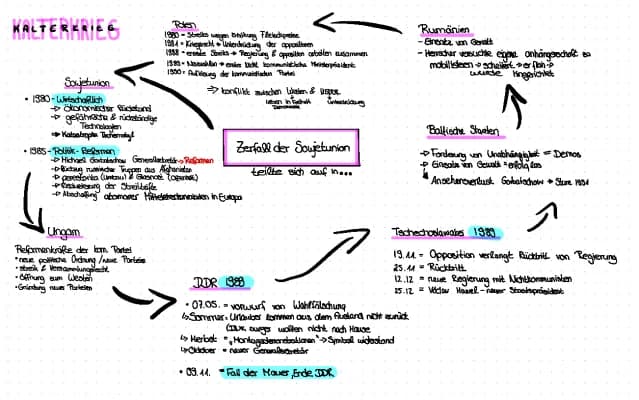 KALTERKRIEG
Polen
1980 - Streiks wegen Erhöhung Fleischpreise
1981 = Kriegsrecht → Unterdrückung der oppositionen
1988 = erneute Streiks → Regierung & opposition arbeiten zusammen
1989 = Neuwahlen → erster nicht kommunistische Ministerpräsident
1990 = Auflösung der kommunistischen Partei
⇒ Konflikt zwischen Westen &
leben in Freiheit
Rumänien
- Einsatz von Gewalt
- Herrscher versuchte eigene Anhängerschaft zu
mobilisieren → scheitert → er floh →
wurde hingerichtet
Sowjetunion
• 1980 - Wirtschaftlich
→ ökonomischer Rückstand
→ gefährliche & rückständige
Technologien
→ Katastrophe Tschernobyl
• 1985 - Politik - Reformen
→ Michael Gorbatschow Generalsekretär → Reformen
→ Rückzug russischer Truppen aus Afghanistan
→ perestroika (Umbau) & Glasnost (offenheit)
→ Reduzierung der Streitkräfte
→ Abschaffung atomarer Mittelstreckenraketen in Europa
Zerfall der Sowjetunion
teilte sich auf in...
Baltische Staaten
→ Forderung von Unabhängigkeit = Demos
→ Einsatz von Gewalt = erfolglos
Ansehensverlust Gorbatschow → Sturz 1991
Ungarn
Reformenkräfte der kom. Partei
• neue politische Ordnung / neue Parteien
• streik & Versammlungsrecht
• Öffnung zum Westen
• Gründung neuer Parteien
DDR 1989
• 07.05. = vorwurf von Wahlfälschung
↳ Sommer = Urlauber kommen aus dem Ausland nicht zurück
(DDR burger wollten nicht nach Hause
↳ Herbst = "Montagsdemonstrationen" → Symbol widerstand
↳ Oktober = neuer Generalsekretär
• 09.11. = Fall der Mauer, Ende DDR
Tschechoslowakei 1989
19.11 = Opposition verlangt Rücktritt von Regierung
25.11 = Rücktritt
12.12 = neue Regierung mit Nichtkommunisten
25.12 = Václav Havel - neuer Staatspräsident